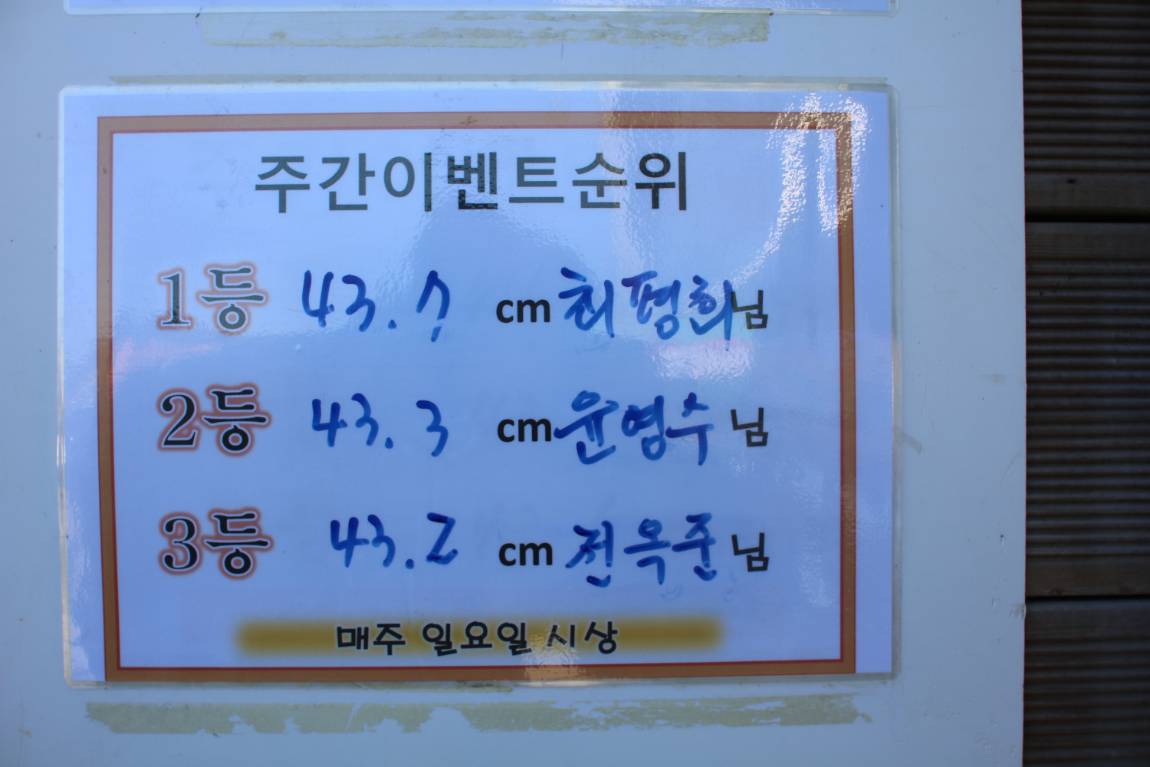 주간이벤트순위
1등 43.7 cm 최평희님
2등 43.3 cm 윤영수 님
3등 43.2 cm 전옥준 님
매주 일요일 시상